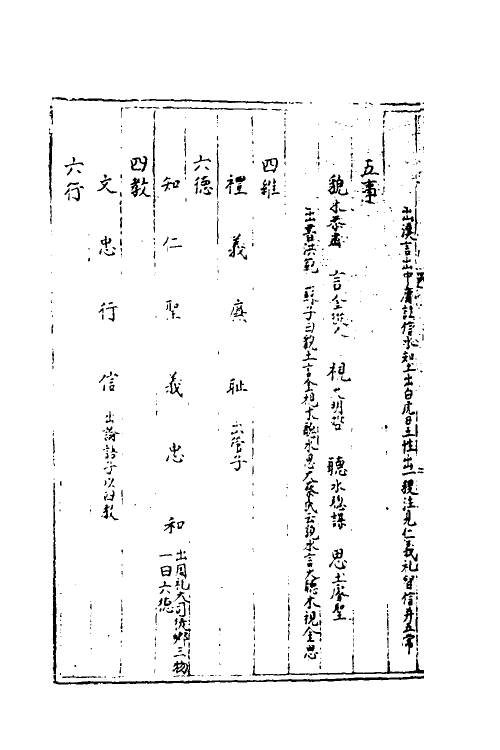 出漢言出中庸註信水知土出白虎曰五性出一稷注見仁義礼智信丼五常
五事
貌水恭肅 言金從乂 視火明哲 聽水聰謀 思土睿聖
出書洪範 蘇子曰貌土言金視木聽水思火蔡氏云貌水言火聽木視金思
四維
禮義廉耻 出管子
六德
知仁聖義忠和 出周礼大司徒鄉三物一曰六德
四教
文忠行信 出論語子以四教
六行